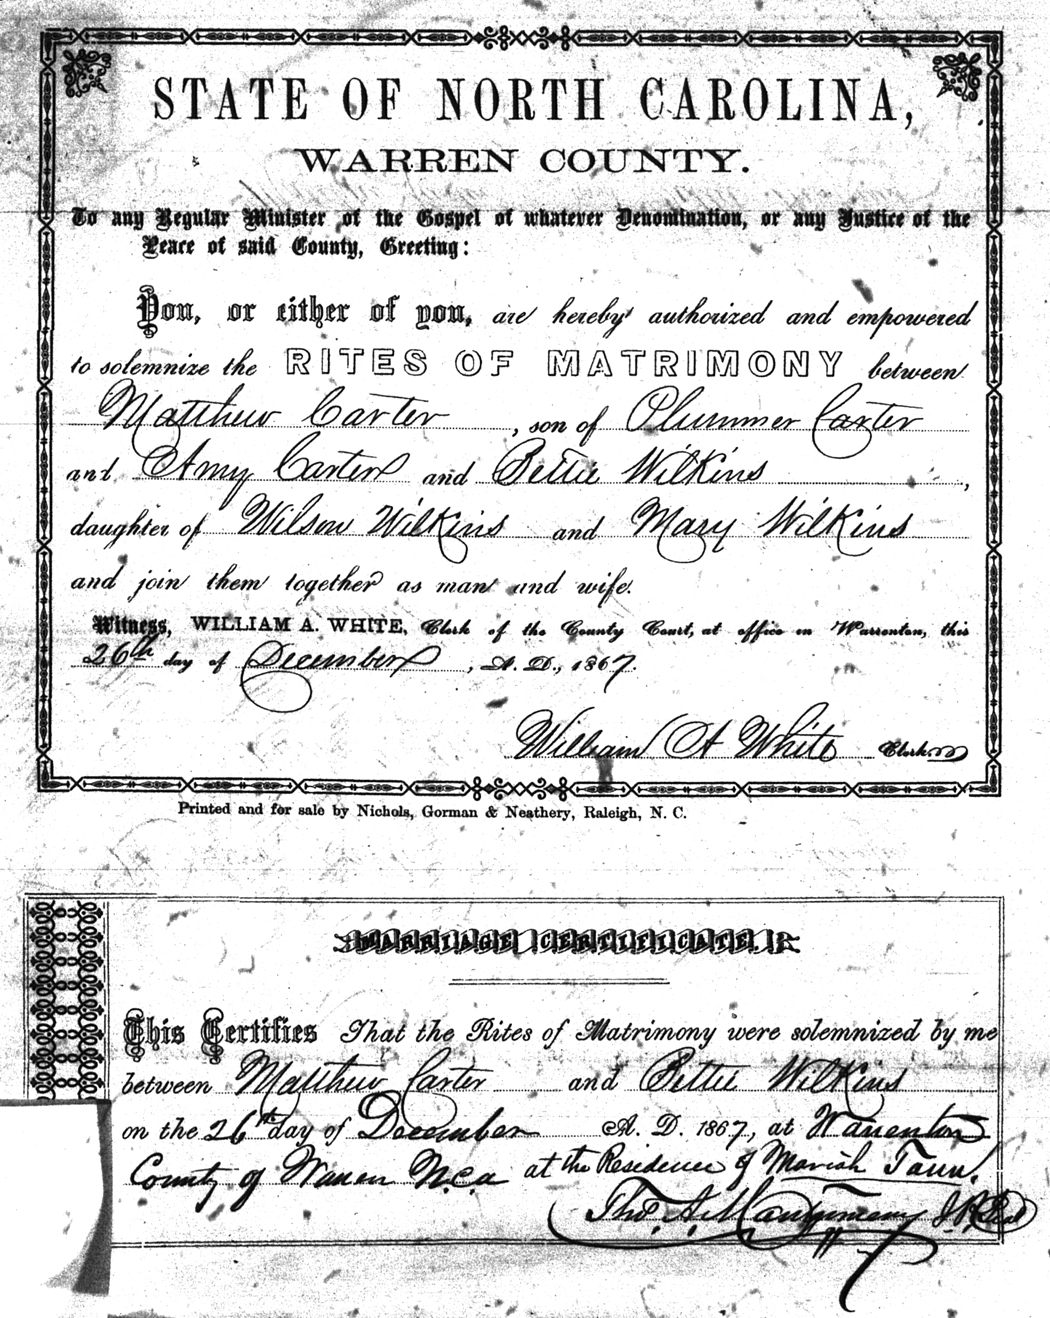 STATE OF NORTH CAROLINA,
WARREN COUNTY.
To any Regular Minister of the Gospel of whatever Denomination, or any Justice of the
Peace of said County, Greeting:
You, or either of you, are hereby authorized and empowered
to solemnize the RITES OF MATRIMONY between
Matthew Carter, son of Plummer Carter
and Amy Carter and Bettie Wilkins,
daughter of Wilson Wilkins and Mary Wilkins
and join them together as man and wife.
Witness, WILLIAM A. WHITE, Clerk of the County Court, at office in Warrenton, this
26th day of December, A. D., 1867.
William A White Clerk.
Printed and for sale by Nichols, Gorman & Neathery, Raleigh, N. C.
MARRIAGE CERTIFICATE.
This Certifies That the Rites of Matrimony were solemnized by me
between Matthew Carter and Bettie Wilkins
on the 26th day of December A. D. 1867, at Warrenton
County of Warren N.Ca at the Residence of
Thos. A. Montgomery J.P.